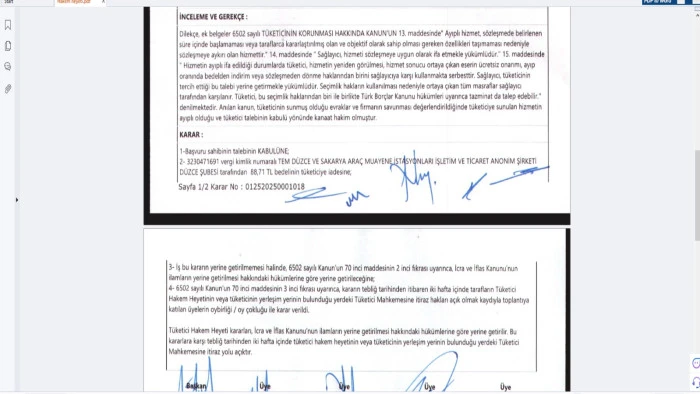 İNCELEME VE GEREKÇE :
Dilekçe, ek belgeler 6502 sayılı TÜKETİCİNİN KORUNMASI HAKKINDA KANUN'UN 13. maddesinde" Ayıplı hizmet, sözleşmede belirlenen
süre içinde başlamaması veya taraflarca kararlaştırılmış olan ve objektif olarak sahip olması gereken özellikleri taşımaması nedeniyle
sözleşmeye aykırı olan hizmettir." 14. maddesinde " Sağlayıcı, hizmeti sözleşmeye uygun olarak ifa etmekle yükümlüdür." 15. maddesinde
" Hizmetin ayıplı ifa edildiği durumlarda tüketici, hizmetin yeniden görülmesi, hizmet sonucu ortaya çıkan eserin ücretsiz onarımı, ayıp
oranında bedelden indirim veya sözleşmeden dönme haklarından birini sağlayıcıya karşı kullanmakta serbesttir. Sağlayıcı, tüketicinin
tercih ettiği bu talebi yerine getirmekle yükümlüdür. Seçimlik hakların kullanılması nedeniyle ortaya çıkan tüm masraflar sağlayıcı
tarafından karşılanır. Tüketici, bu seçimlik haklarından biri ile birlikte Türk Borçlar Kanunu hükümleri uyarınca tazminat da talep edebilir."
denilmektedir. Anılan kanun, tüketicinin sunmuş olduğu evraklar ve firmanın savunması değerlendirildiğinde tüketiciye sunulan hizmetin
ayıplı olduğu ve tüketici talebinin kabulü yönünde kanaat hakim olmuştur.
KARAR :
1-Başvuru sahibinin talebinin KABULÜNE,
2- 3230471691 vergi kimlik numaralı TEM DÜZCE VE SAKARYA ARAÇ MUAYENE İSTASYONLARI İŞLETİM VE TİCARET ANONİM ŞİRKETİ
DÜZCE ŞUBESİ tarafından 88,71 TL bedelinin tüketiciye iadesine,
Sayfa 1/2 Karar No : 012520250001018
3- İş bu kararın yerine getirilmemesi halinde, 6502 sayılı Kanun'un 70 inci maddesinin 2 inci fıkrası uyarınca, İcra ve İflas Kanunu'nun
ilamların yerine getirilmesi hakkındaki hükümlerine göre yerine getirileceğine,
4- 6502 sayılı Kanun'un 70 inci maddesinin 3 inci fıkrası uyarınca, kararın tebliğ tarihinden itibaren iki hafta içinde tarafların Tüketici
Hakem Heyetinin veya tüketicinin yerleşim yerinin bulunduğu yerdeki Tüketici Mahkemesine itiraz hakları açık olmak kaydıyla toplantıya
katılan üyelerin oybirliği / oy çokluğu ile karar verildi.
Tüketici Hakem Heyeti kararları, İcra ve İflas Kanunu'nun ilamların yerine getirilmesi hakkındaki hükümlerine göre yerine getirilir. Bu
kararlara karşı tebliğ tarihinden iki hafta içinde tüketici hakem heyetinin veya tüketicinin yerleşim yerinin bulunduğu yerdeki Tüketici
Mahkemesine itiraz yolu açıktır.
Başkan Üye Üye Üye Üye